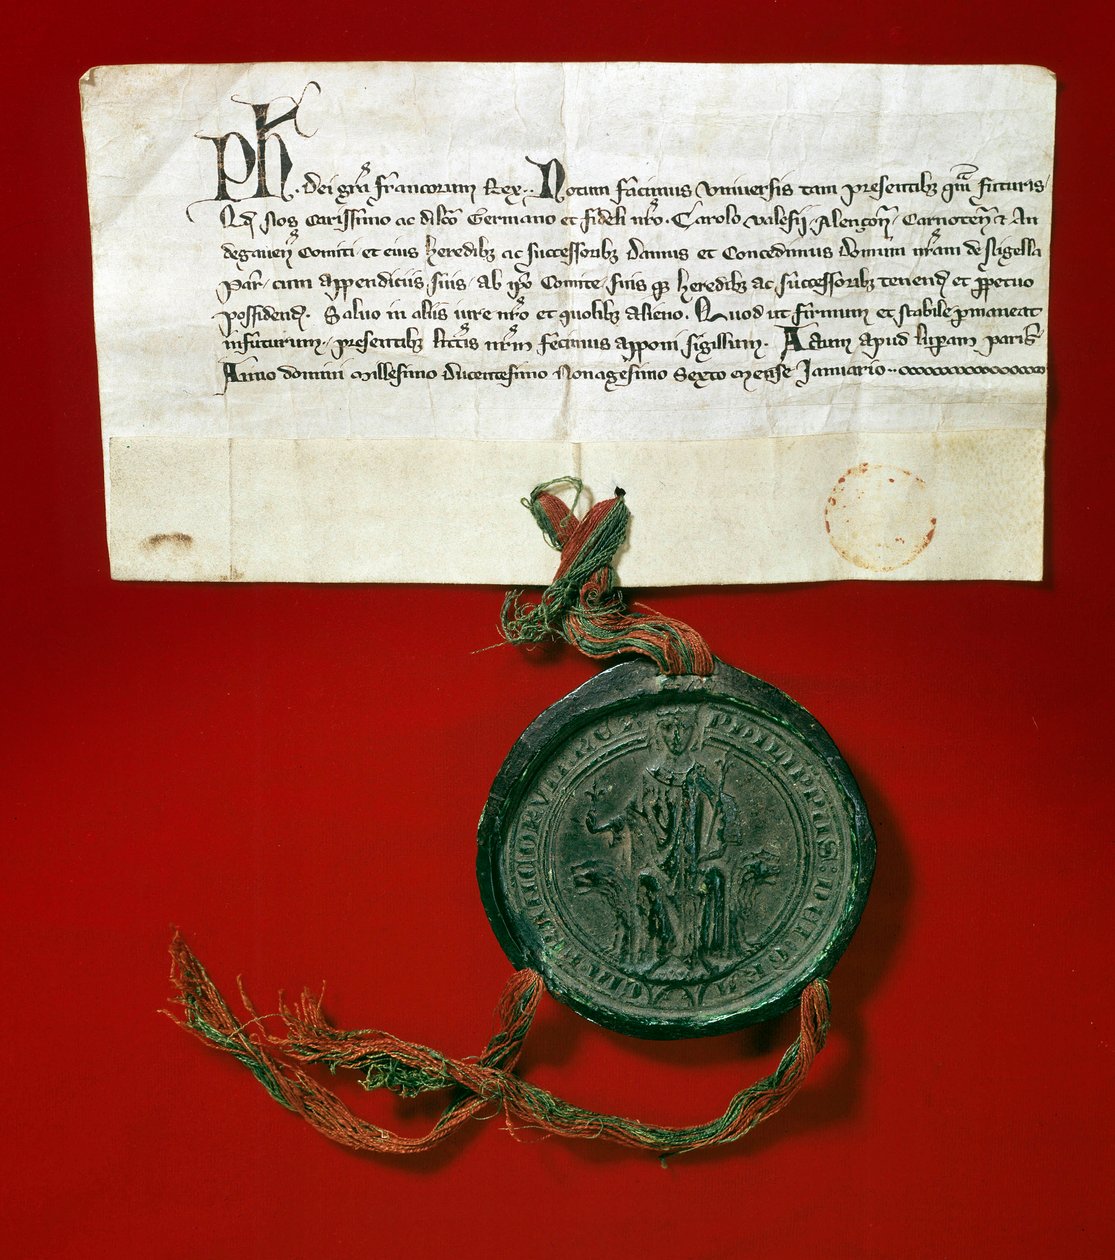 Ph. Dei gra Francorum Rex. Notum facimus Universis tam presentibz qm futuris
Qd Nos Carissimo ac dilco Germano et fideli nro. Carolo Valesij. Alenconn. Carnoten & An
degaven Comiti et eius heredibz ac successoribz Damus et Concedimus domum nram de Nigella
Par cum appendiciis suis. Ab ipo Comite suis qz heredibz ac successoribz tenend et ppetuo
possidend. Salvo in aliis iure nro et quolibz alieno. Quod ut firmum et stabile pmaneat
infuturum. presentibz litteris nrm fecimus apponi sigillum. Actum apud luparam paris
Anno domini Millesimo Ducentesimo Nonagesimo Sexto mense Januario
PHILIPPUS : DEI : GRACIA : FRANCORVM : REX